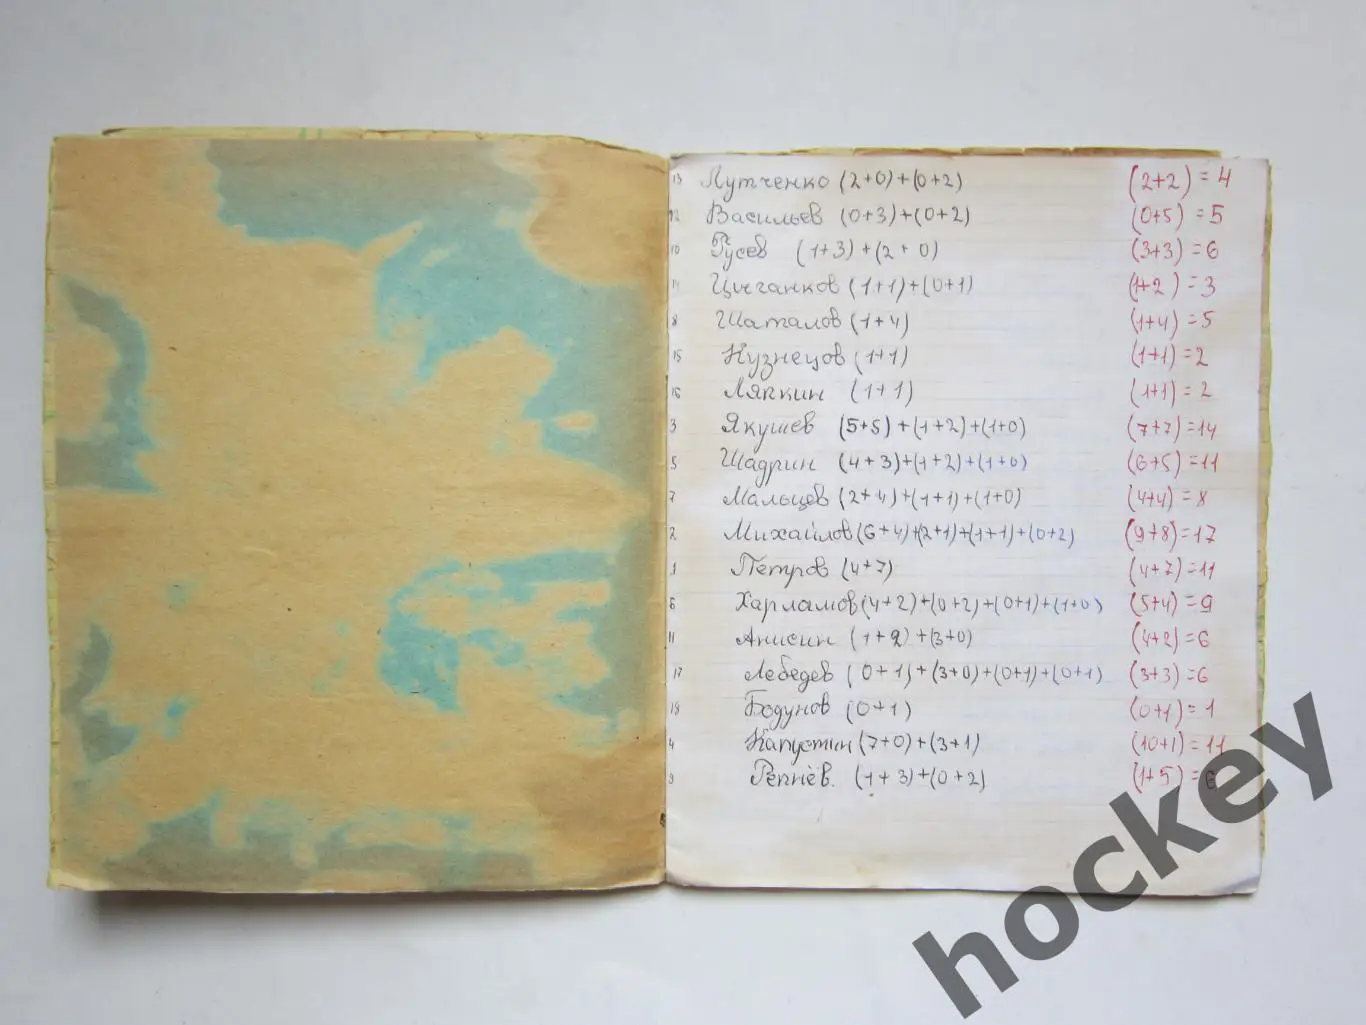 13 Лутченко (2+0)+(0+2) (2+2)=4
12 Васильев (0+3)+(0+2) (0+5)=5
10 Гусев (1+3)+(2+0) (3+3)=6
14 Цыганков (1+1)+(0+1) (1+2)=3
8 Шаталов (1+4) (1+4)=5
15 Кузнецов (1+1) (1+1)=2
16 Ляпкин (1+1) (1+1)=2
3 Якушев (5+5)+(1+2)+(1+0) (7+7)=14
5 Шадрин (4+3)+(1+2)+(1+0) (6+5)=11
7 Мальцев (2+4)+(1+1)+(1+0) (4+4)=8
2 Михайлов (6+4)+(2+1)+(1+1)+(0+2) (9+8)=17
1 Петров (4+7) (4+7)=11
6 Харламов (4+2)+(0+2)+(0+1)+(1+0) (5+4)=9
11 Анисин (1+2)+(3+0) (4+2)=6
17 Лебедев (0+1)+(3+0)+(0+1)+(0+1) (3+3)=6
18 Бодунов (0+1) (0+1)=1
4 Капустин (7+0)+(3+1) (10+1)=11
9 Репнёв. (1+3)+(0+2) (1+5)=6
hockey